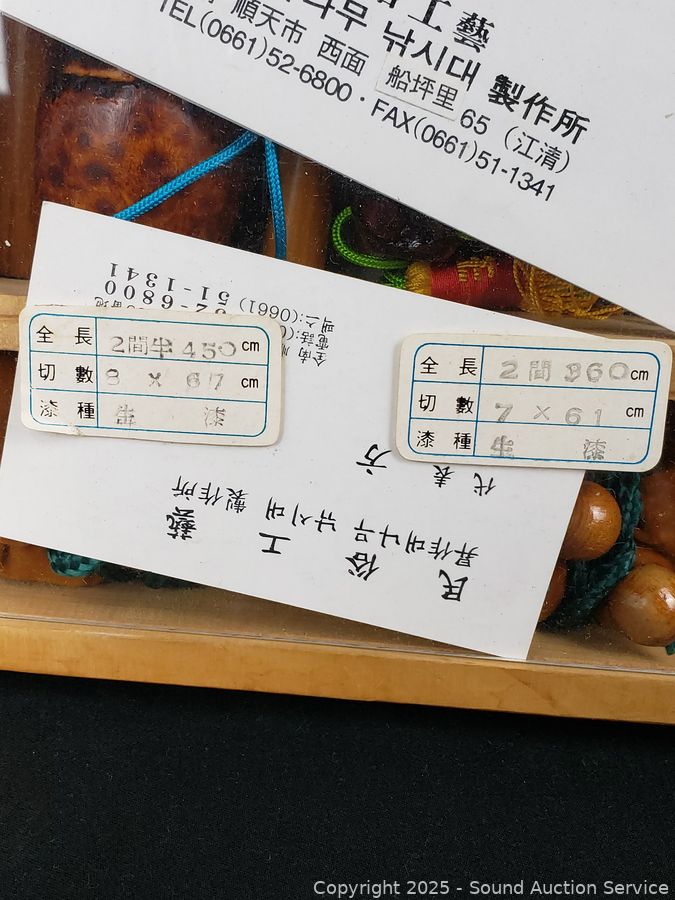 工藝
낚시대 製作所
順天市 西面 船坪里 65 (江清)
TEL(0661)52-6800 · FAX(0661)51-1341
全長 2間半 450 cm
切數 8 × 67 cm
漆種 生 漆
全長 2間 360 cm
切數 7 × 61 cm
漆種 生 漆
民俗工藝
昇作대나무 낚시대 製作所
代表 方
全南
電話:(0
팩스:(0661) 51-1341
Copyright 2025 - Sound Auction Service